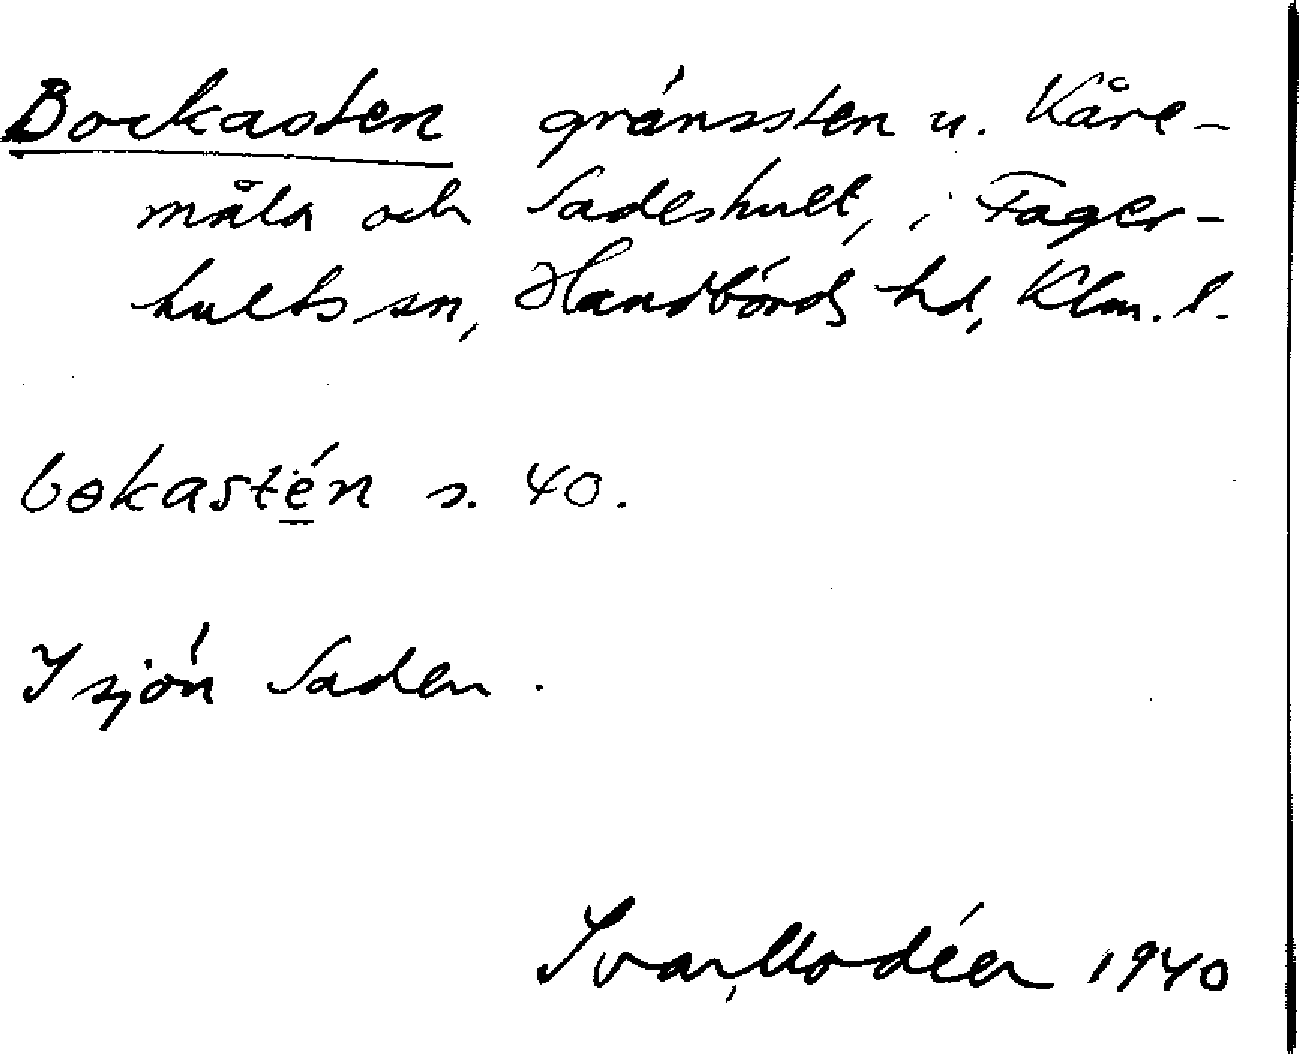 Bockasten gränssten u. Kåre-
måla och Sadeshult, i Fager-
hults sn, Handbörds hd, Klm. l.
bɵkastén s. 40.
I sjön Saden.
Ivar Modéer 1940